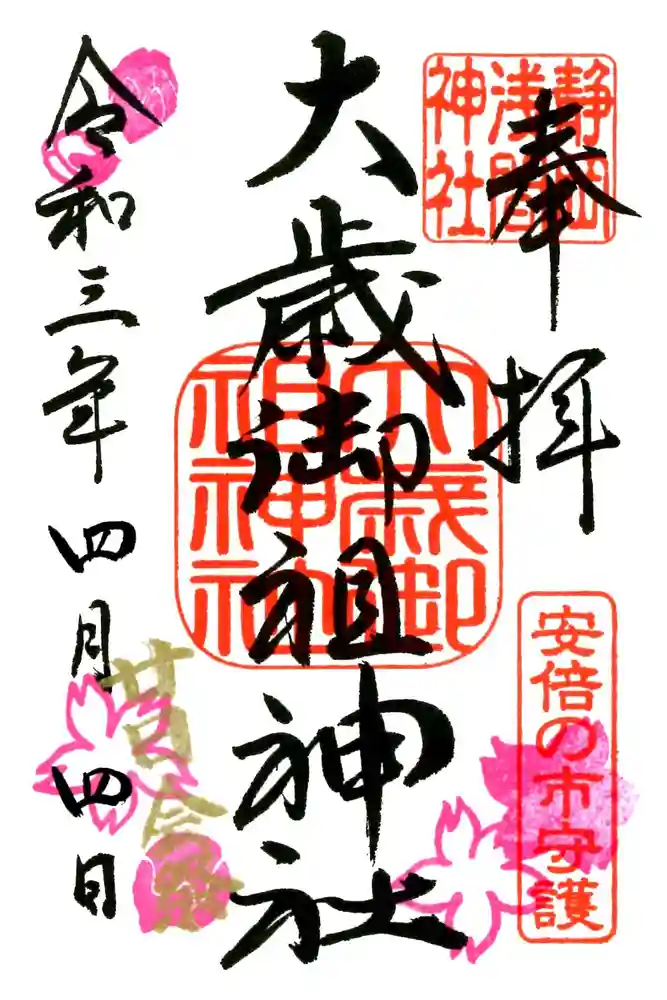 奉拝
静岡
浅間
神社
安倍の市守護
大歳御祖神社
大歳御
祖神社
令和三年四月四日
廿日会祭